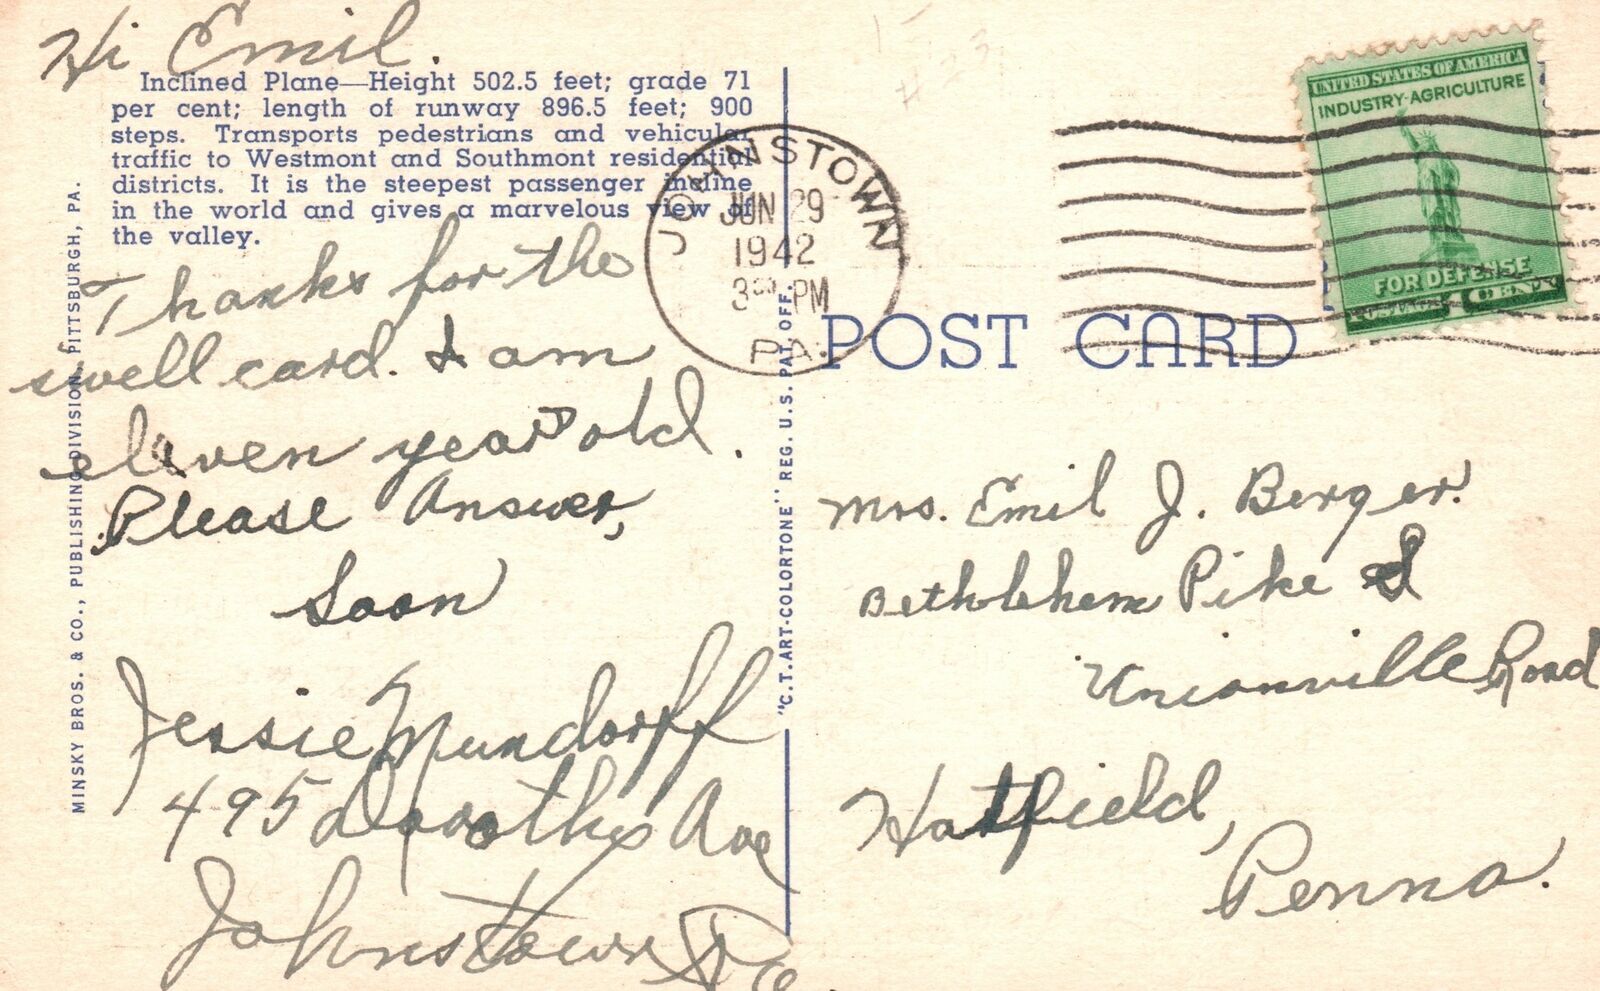 Hi Emil.
Inclined Plane—Height 502.5 feet; grade 71
per cent; length of runway 896.5 feet; 900
steps. Transports pedestrians and vehicular
traffic to Westmont and Southmont residential
districts. It is the steepest passenger incline
in the world and gives a marvelous view of
the valley.
Thanks for the
swell card. I am
eleven years old.
Please Answer,
Soon
Jessie Mundorff
495 Dorothy Ave
Johnstown Pa.
MINSKY BROS. & CO., PUBLISHING DIVISION, PITTSBURGH, PA.
"C.T. ART-COLORTONE" REG. U.S. PAT. OFF.
#23
JOHNSTOWN
JUN 29
1942
3 PM
PA.
UNITED STATES OF AMERICA
INDUSTRY-AGRICULTURE
FOR DEFENSE
POSTAGE 1 CENT
POST CARD
Mrs. Emil J. Berger.
Bethlehem Pike &
Unionville Road
Hatfield,
Penna.